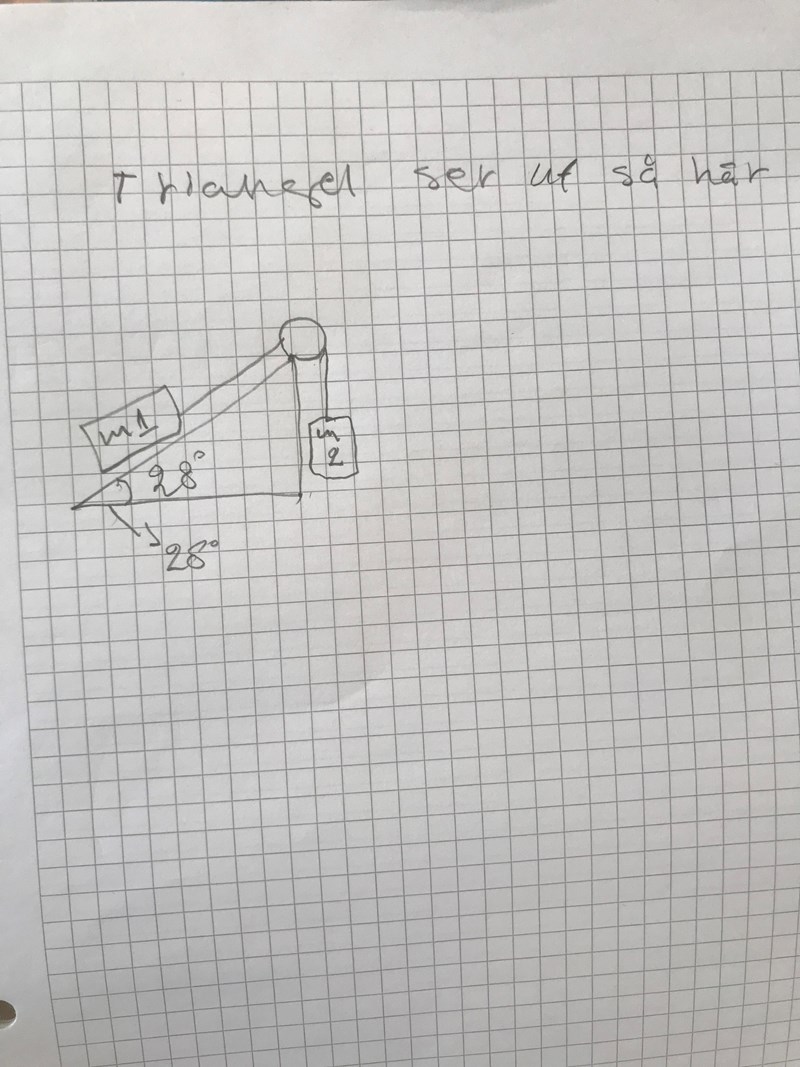 Triangel ser ut så här
m1
m
2
28°
28°